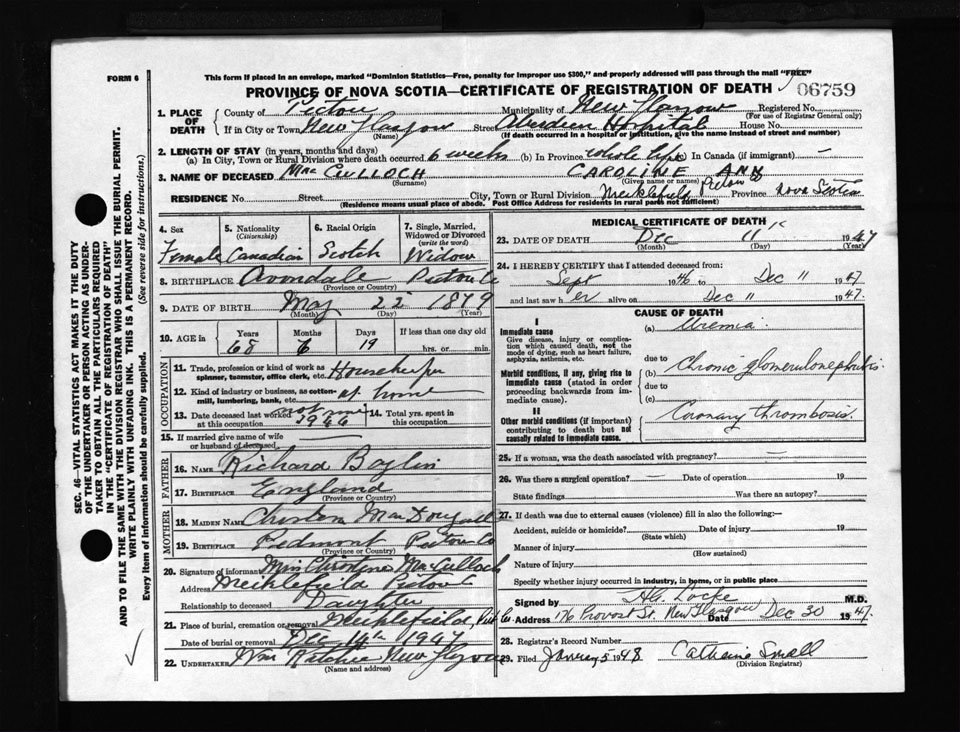 FORM 6
This form if placed in an envelope, marked "Dominion Statistics—Free, penalty for improper use $300," and properly addressed will pass through the mail "FREE"
PROVINCE OF NOVA SCOTIA—CERTIFICATE OF REGISTRATION OF DEATH
06759
1. PLACE OF DEATH
County of Pictou Municipality of New Glasgow Registered No.
(For use of Registrar General only)
If in City or Town New Glasgow Street Aberdeen Hospital House No.
(Name) (If death occurred in a hospital or institution, give the name instead of street and number)
2. LENGTH OF STAY (in years, months and days)
(a) In City, Town or Rural Division where death occurred 6 weeks (b) In Province whole life (c) In Canada (if immigrant) —
3. NAME OF DECEASED MacCULLOCH CAROLINE ANN
(Surname) (Given name or names)
RESIDENCE No. Street City, Town or Rural Division Meiklefield Pictou Province Nova Scotia
(Residence means usual place of abode. Post Office Address for residents in rural parts not sufficient)
4. Sex Female
5. Nationality (Citizenship) Canadian
6. Racial Origin Scotch
7. Single, Married, Widowed or Divorced (write the word) Widow
8. BIRTHPLACE Avondale Pictou Co
(Province or Country)
9. DATE OF BIRTH May 22 1879
(Month) (Day) (Year)
10. AGE in Years Months Days If less than one day old
68 6 19 hrs. or min.
OCCUPATION
11. Trade, profession or kind of work as spinner, teamster, office clerk, etc. Housekeeper
12. Kind of industry or business, as cotton-mill, lumbering, bank, etc. at home
13. Date deceased last worked at this occupation 1946
14. Total yrs. spent in this occupation
15. If married give name of wife or husband of deceased
FATHER
16. NAME Richard Boylin
17. BIRTHPLACE England
(Province or Country)
MOTHER
18. MAIDEN NAME Christena MacDougall
19. BIRTHPLACE Piedmont Pictou Co
(Province or Country)
20. Signature of informant Miss Christena MacCulloch
Address Meiklefield Pictou C
Relationship to deceased Daughter
21. Place of burial, cremation or removal Meiklefield, Pict Co
Date of burial or removal Dec 14th 1947
22. UNDERTAKER Wm Ritchie New Glasgow
(Name and address)
MEDICAL CERTIFICATE OF DEATH
23. DATE OF DEATH Dec 11 1947
(Month) (Day) (Year)
24. I HEREBY CERTIFY that I attended deceased from:
Sept 1946 to Dec 11 1947
and last saw her alive on Dec 11 1947.
CAUSE OF DEATH
I
Immediate cause
Give disease, injury or complication which caused death, not the mode of dying, such as heart failure, asphyxia, asthenia, etc.
(a) Uremia.
due to
Morbid conditions, if any, giving rise to immediate cause (stated in order proceeding backwards from immediate cause).
(b) Chronic glomerulonephritis.
due to
(c)
II
Other morbid conditions (if important) contributing to death but not causally related to immediate cause.
Coronary thrombosis.
25. If a woman, was the death associated with pregnancy? —
26. Was there a surgical operation? — Date of operation 19
State findings Was there an autopsy?
27. If death was due to external causes (violence) fill in also the following:—
Accident, suicide or homicide? Date of injury 19
(State which)
Manner of injury
(How sustained)
Nature of injury
Specify whether injury occurred in industry, in home, or in public place
Signed by H.A. Locke M.D.
Address 176 Provost St. New Glasgow Date Dec 30 1947.
28. Registrar's Record Number
29. Filed January 5 1948 Catherine Small
(Division Registrar)
SEC. 46—VITAL STATISTICS ACT MAKES IT THE DUTY
OF THE UNDERTAKER OR PERSON ACTING AS UNDER-
TAKER TO OBTAIN ALL THE PARTICULARS REQUIRED
IN THE "CERTIFICATE OF REGISTRATION OF DEATH"
AND TO FILE THE SAME WITH THE DIVISION REGISTRAR WHO SHALL ISSUE THE BURIAL PERMIT.
WRITE PLAINLY WITH UNFADING INK. THIS IS A PERMANENT RECORD.
Every item of information should be carefully supplied. (See reverse side for instructions.)